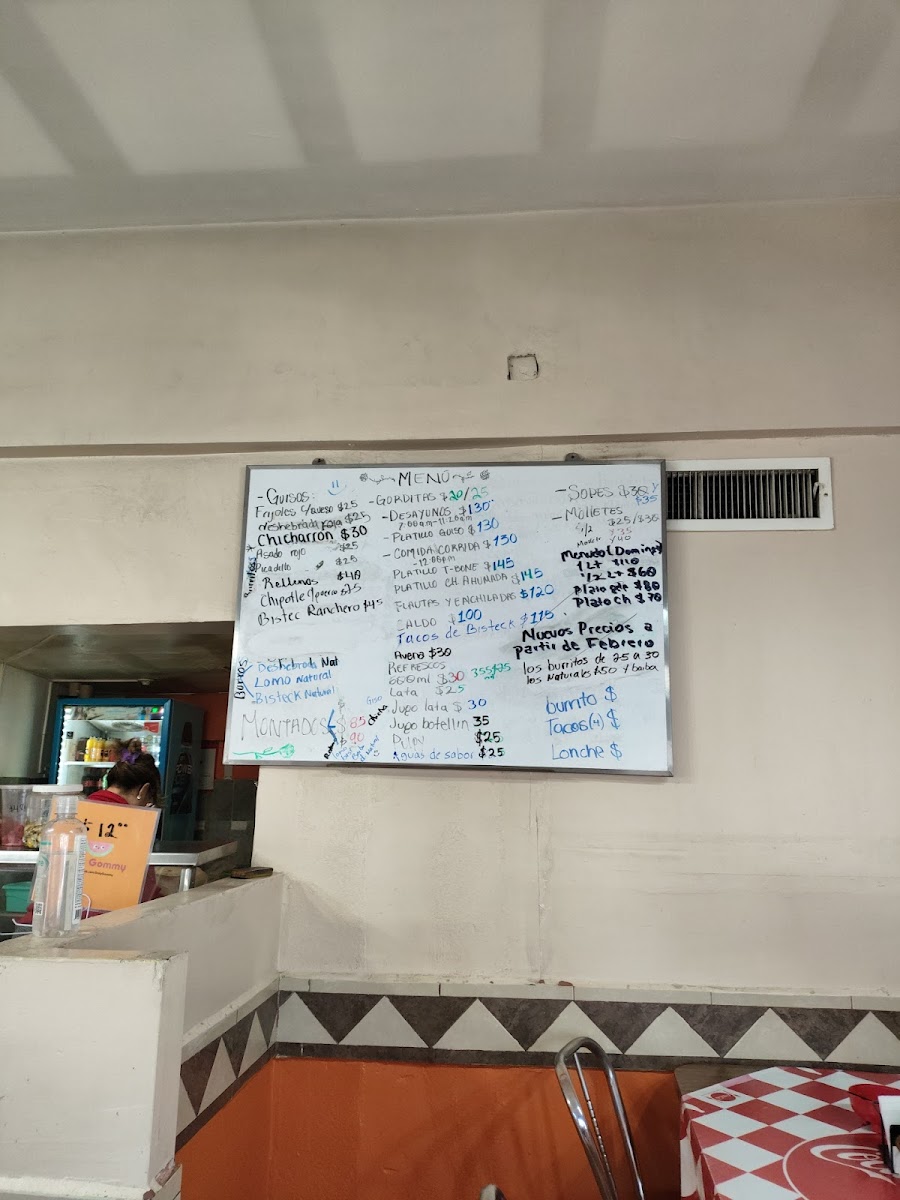 MENÚ
- GUISOS:
Frijoles c/queso $25
deshebrada roja $25
Chicharrón $30
Asado rojo $25
Picadillo $25
Rellenos $40
Chipotle
Bistec Ranchero $45
Burritos
Burros
Deshebrada Nat
Lomo Natural
Bisteck Natural
MONTADOS $ 85
$ 90
- GORDITAS $20/25
- DESAYUNOS $130
7:00am-11:20am
- PLATILLO GUISO $130
- COMIDA CORRIDA $130
-12:00pm
PLATILLO T-BONE $145
PLATILLO CH AHUMADA $145
FLAUTAS Y ENCHILADAS $120
CALDO $100
Tacos de Bisteck $115
Avena $30
REFRESCOS
600ml $30 355 $25
Lata $25
Jugo lata $ 30
Jugo botellin 35
$25
Aguas de sabor $25
- SOPES $30 y
$35
- MOLLETES
$25/$30
1/2 $35
Menudo (Domingo)
1 Lt $110
1/2 Lt $60
Plato gde $80
Plato Ch $70
Nuevos Precios a
partir de Febrero
los burritos de 25 a 30
los Naturales $50 y
burrito $
Tacos(4) $
Lonche $
$ 12°°
Gommy